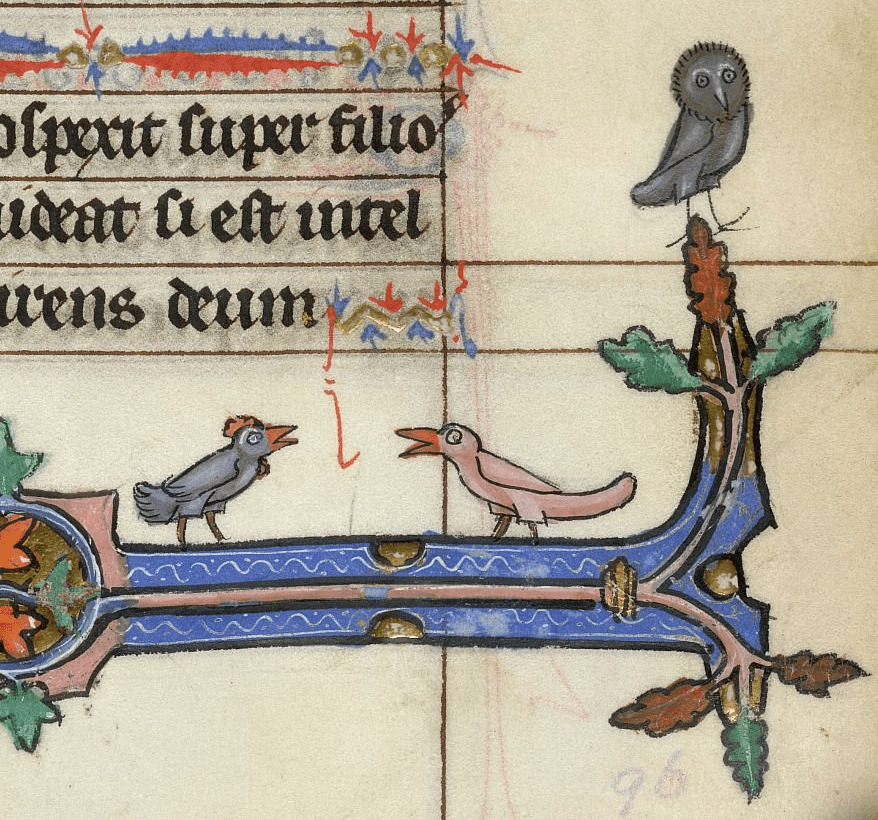 ospexit super filio
uideat si est intel
irens deum
96